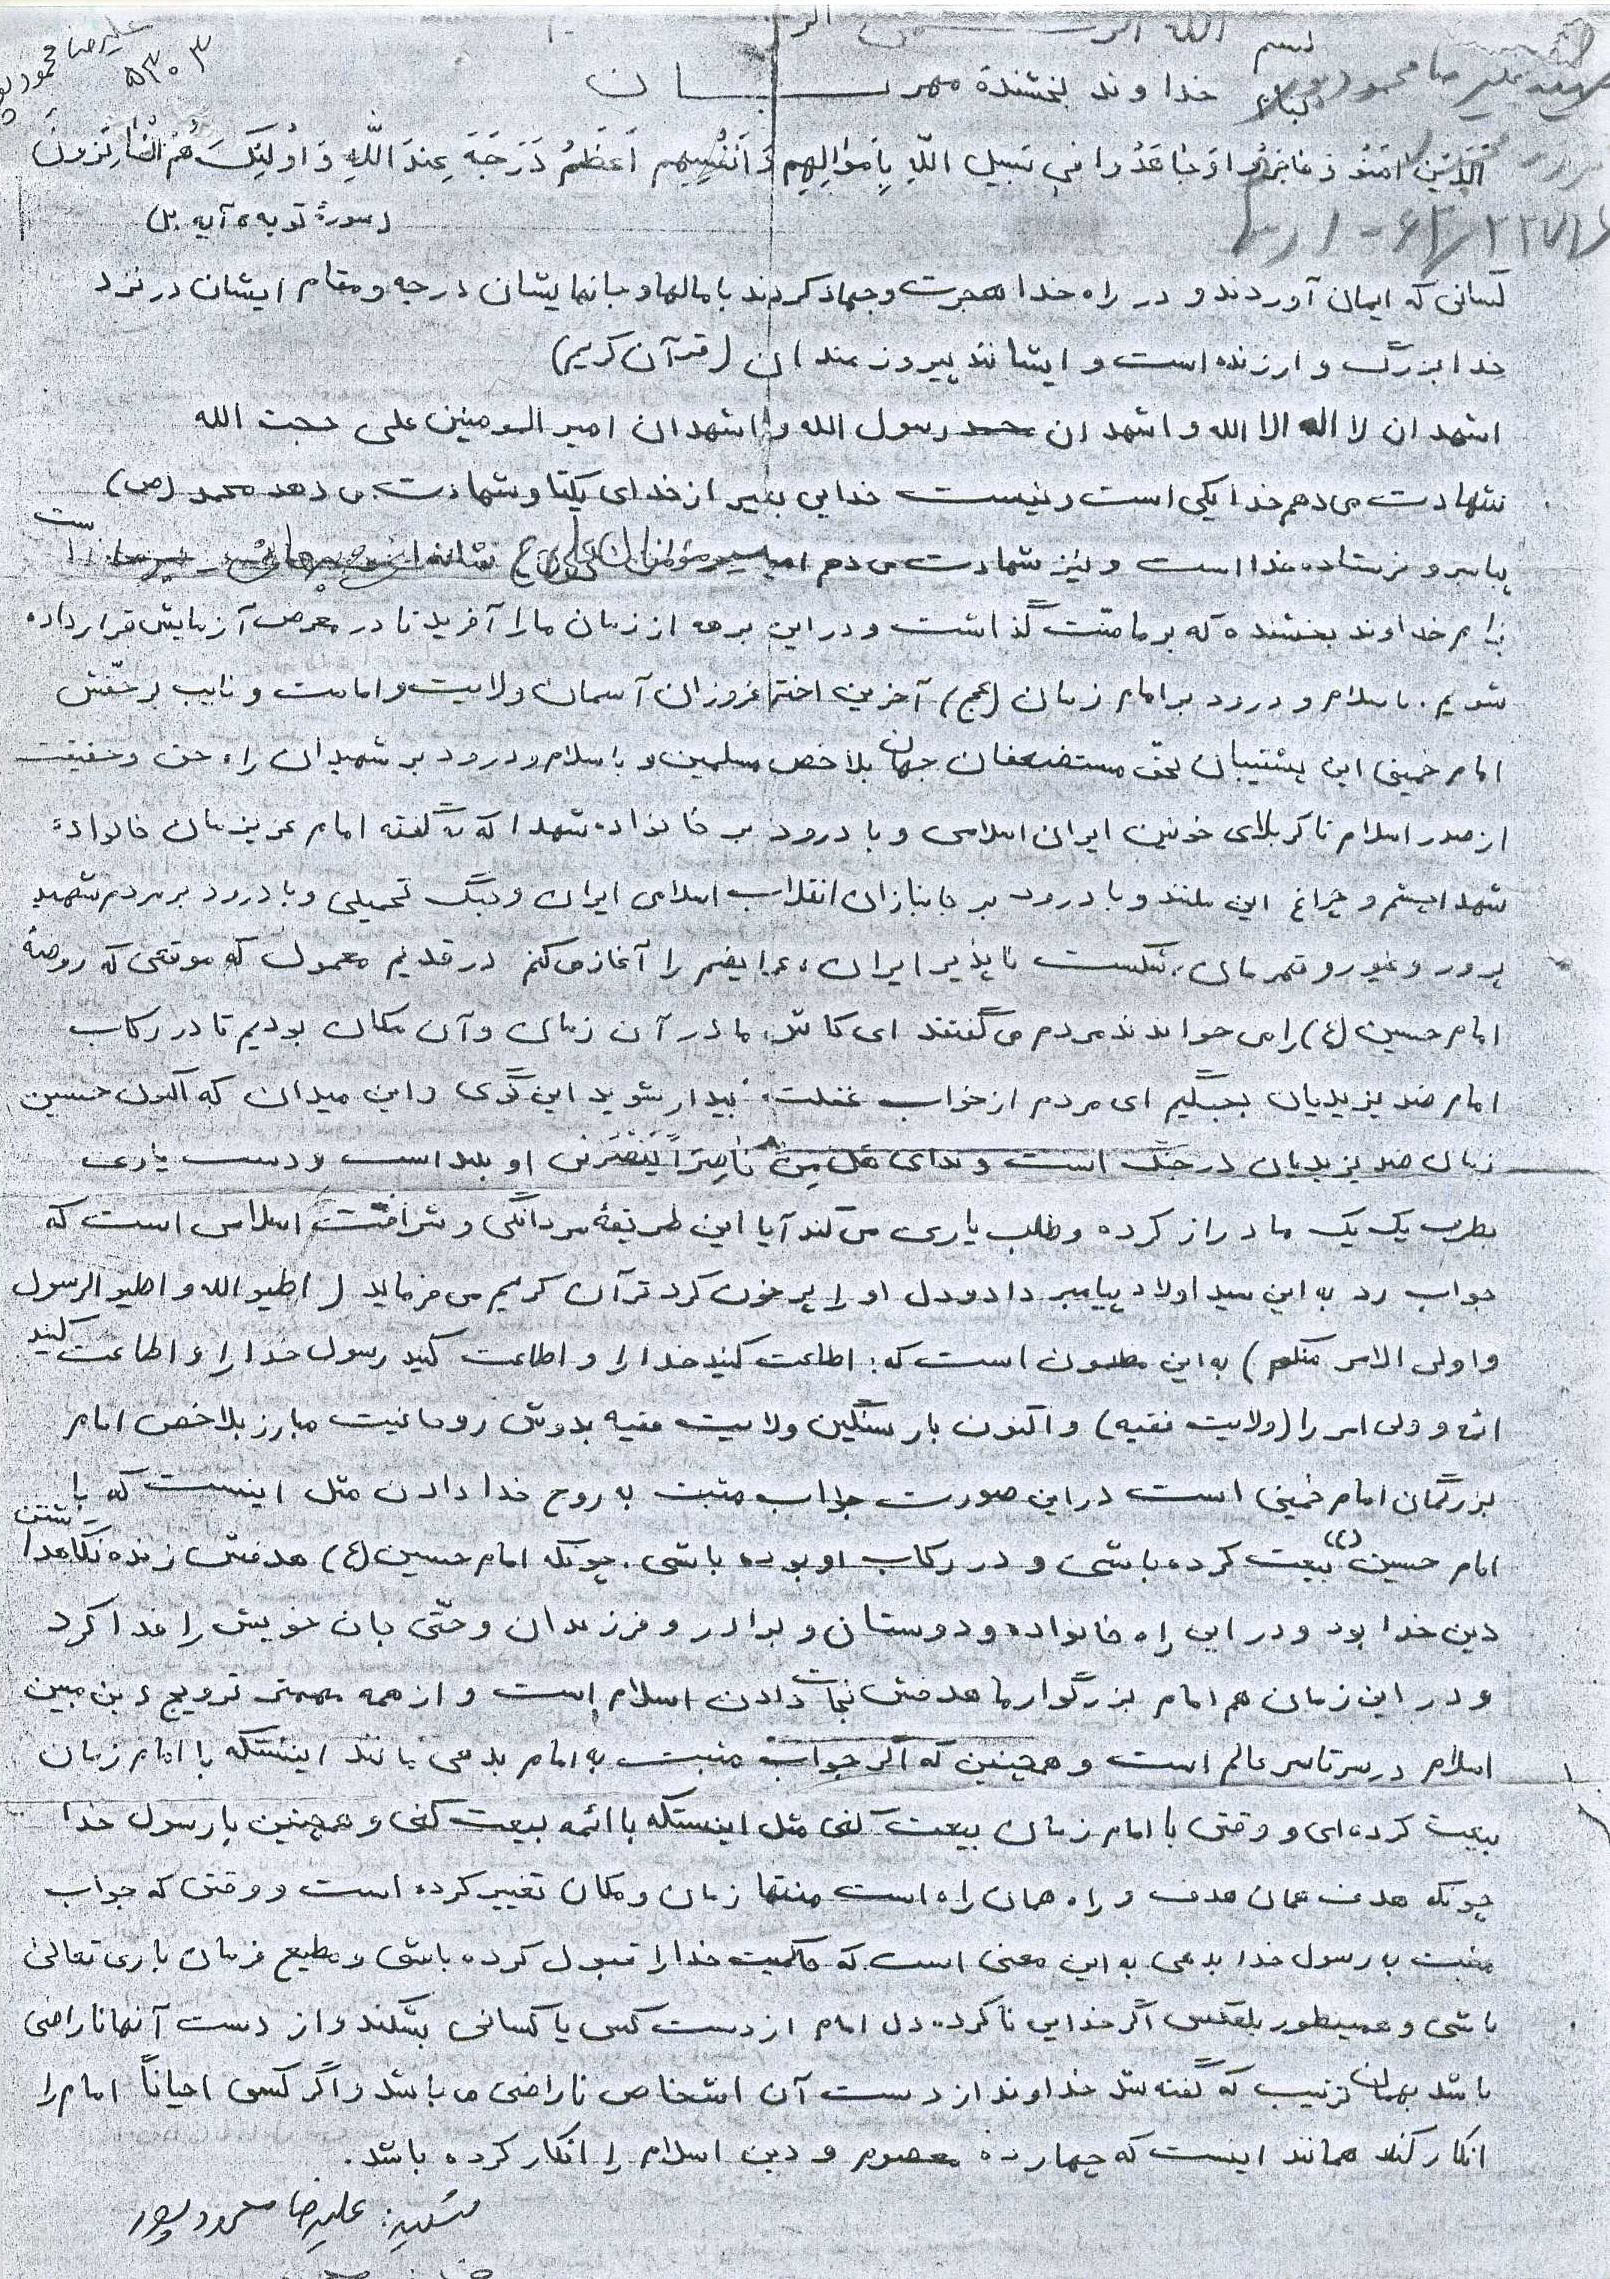 علیرضا محمودپور
۵۳۰۳
بسم الله الر
بنام خداوند بخشندهٔ مهربــــــان
اَلَّذینَ آمَنُو وَ هاجَرُوا وَ جاهَدُوا فی سَبیلِ اللّهِ بِاَموالِهِم وَ اَنفُسِهِم اَعظَمُ دَرَجَة عِندَ اللّهِ وَ اُولئِکَ هُمُ الفائِزونَ
(سورهٔ توبه، آیه ۲۰)
کسانی که ایمان آوردند و در راه خدا هجرت و جهاد کردند با مالها و جانهایشان درجه و مقام ایشان در نزد
خدا بزرگ و ارزنده است و ایشانند پیروزمندان (قرآن کریم)
اشهد ان لا اله الا الله و اشهد ان محمد رسول الله و اشهد ان امیر المومنین علی حجت الله
شهادت می دهم خدا یکی است و نیست خدایی بغیر از خدای یکتا و شهادت می دهد محمد (ص)
پیامبر و فرستاده خدا است و نیز شهادت می دهم امیر مؤمنان علی (ع) نشانه
بنام خداوند بخشنده که بر ما منّت گذاشت و در این برهه از زمان ما را آفرید تا در معرض آزمایش قرار داده
شویم. باسلام و درود بر امام زمان (عج) آخرین اختر فروزان آسمان ولایت و امامت و نایب بر حقّش
امام خمینی این پشتیبان بحق مستضعفان جهان بلاخص مسلمین و باسلام و درود بر شهیدان راه حق و حقیقت
از صدر اسلام تا کربلای خونین ایران اسلامی و با درود بر خانواده شهدا که به گفته امام عزیزمان خانوادهٔ
شهدا چشم و چراغ این ملتند و با درود بر جانبازان انقلاب اسلامی ایران و جنگ تحمیلی و با درود بر مردم شهید
پرور و غیور و قهرمان، شکست ناپذیر ایران، عرایضم را آغاز می کنم در قدیم معمول که موقعی که روضهٔ
امام حسین (ع) را می خواندند مردم می گفتند ای کاش ما در آن زمان و آن مکان بودیم تا در رکاب
امام ضد یزیدیان بجنگیم ای مردم از خواب غفلت بیدار شوید این گوی و این میدان که اکنون حسین
زمان ضد یزیدیان در جنگ است و ندای هَل مِن ناصِراً یَنصُرُنی او بلند است و دست یاری
بطرف یک یک ما دراز کرده و طلب یاری می کند آیا این طریقهٔ مردانگی و شرافت اسلامی است که
جواب رد به این سید اولاد پیامبر داد و دل او را پر خون کرد قرآن کریم می فرماید (اطیو الله و اطیو الرسول
و اولی الامر منکم) به این مضمون است که: اطاعت کنید خدا را و اطاعت کنید رسول خدا را و اطاعت کنید
ائمه و ولی امر را (ولایت فقیه) و اکنون بار سنگین ولایت فقیه بدوش روحانیت مبارز بلاخص امام
بزرگمان امام خمینی است در این صورت جواب مثبت به روح خدا دادن مثل اینست که با
امام حسین (ع) بیعت کرده باشی و در رکاب او بوده باشی. چونکه امام حسین (ع) هدفش زنده نگاهداشتن
دین خدا بود و در این راه خانواده و دوستان و برادر و فرزندان و حتّی جان خویش را فدا کرد
و در این زمان هم امام بزرگوار ما هدفش نجات دادن اسلام است و از همه مهمتر ترویج دین مبین
اسلام در سرتاسر عالم است و همچنین که اگر جواب مثبت به امام بدهی مانند اینستکه با امام زمان
بیعت کرده ای و وقتی با امام زمان بیعت کنی مثل اینستکه با ائمه بیعت کنی و همچنین با رسول خدا
چونکه هدف همان هدف و راه همان راه است منتها زمان و مکان تغییر کرده است و وقتی که جواب
مثبت به رسول خدا بدهی به این معنی است که حاکمیت خدا را قبول کرده باشی و مطیع فرمان باری تعالی
باشی و همینطور بلعکس اگر خدایی ناکرده دل امام از دست کسی یا کسانی بشکند و از دست آنها ناراضی
باشد بهمان ترتیب که گفته شد خداوند از دست آن اشخاص ناراضی می باشد و اگر کسی احیاناً امام را
انکار کند همانند اینست که چهارده معصوم و دین اسلام را انکار کرده باشد.
شهید: علیرضا محمودپور